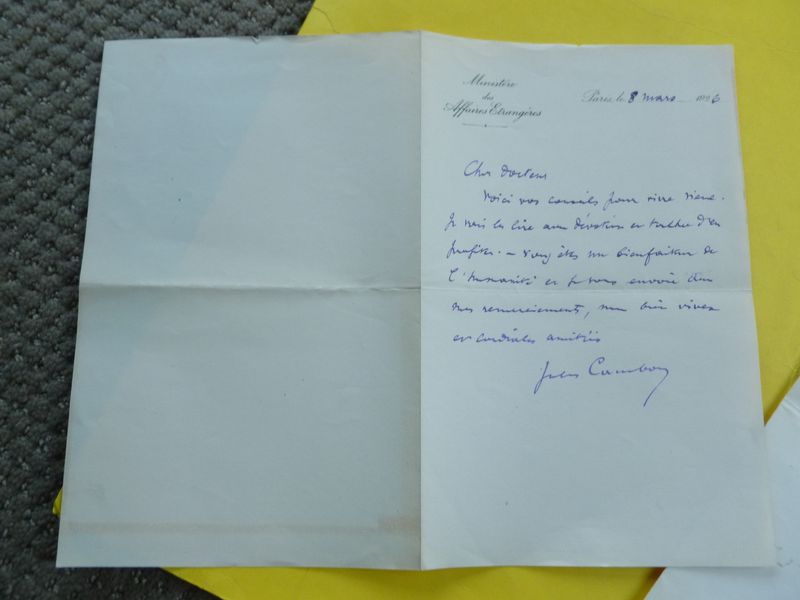 Ministère
des
Affaires Etrangères
Paris, le 8 mars 1926
Cher docteur
Voici vos conseils pour vivre vieux.
Je vais les lire avec dévotion et tâcher d'en
profiter. – Vous êtes un bienfaiteur de
l'humanité et je vous envoie avec
mes remerciements, mes bien vives
et cordiales amitiés
Jules Cambon